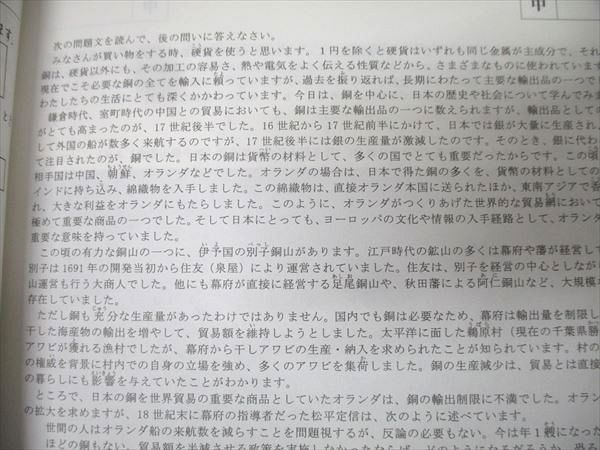 甲
ます。
次の問題文を読んで、後の問いに答えなさい。
みなさんが買い物をする時、硬貨を使うと思います。1円を除くと硬貨はいずれも同じ金属が主成分で、それ
銅は、硬貨以外にも、その加工の容易さ、熱や電気をよく伝える性質などから、さまざまなものに使われています
現在でこそ必要な銅の全てを輸入に頼っていますが、過去を振り返れば、長期にわたって主要な輸出品の一つで
わたしたちの生活にとても深くかかわっています。今日は、銅を中心に、日本の歴史や社会について学んでみま
鎌倉時代、室町時代の中国との貿易においても、銅は主要な輸出品の一つに数えられますが、輸出品としての
がとても高まったのが、17世紀後半でした。16世紀から17世紀前半にかけて、日本では銀が大量に生産され、
して外国の船が数多く来航するのですが、17世紀後半には銀の生産量が激減したのです。そのとき、銀に代わっ
て注目されたのが、銅でした。日本の銅は貨幣の材料として、多くの国でとても重要だったからです。この頃
相手国は中国、朝鮮、オランダなどでした。オランダの場合は、日本で得た銅の多くを、貨幣の材料としての
インドに持ち込み、綿織物を入手しました。この綿織物は、直接オランダ本国に送られたほか、東南アジアで香
れ、大きな利益をオランダにもたらしました。このように、オランダがつくりあげた世界的な貿易網において
極めて重要な商品の一つでした。そして日本にとっても、ヨーロッパの文化や情報の入手経路として、オランダ
重要な意味を持っていました。
この頃の有力な銅山の一つに、伊予国の別子銅山があります。江戸時代の鉱山の多くは幕府や藩が経営して
別子は1691年の開発当初から住友（泉屋）により運営されていました。住友は、別子を経営の中心としながら
山運営も行う大商人でした。他にも幕府が直接に経営する足尾銅山や、秋田藩による阿仁銅山など、大規模な
存在していました。
ただし銅も充分な生産量があったわけではありません。国内でも銅は必要なため、幕府は輸出量を制限し
干した海産物の輸出を増やして、貿易額を維持しようとしました。太平洋に面した鵜原村（現在の千葉県勝
アワビが獲れる漁村でしたが、幕府から干しアワビの生産・納入を求められたことが知られています。村の
の権威を背景に村内での自身の立場を強め、多くのアワビを集荷しました。銅の生産減少は、貿易とは直接
の暮らしにも影響を与えていたことがわかります。
ところで、日本の銅を世界貿易の重要な商品としていたオランダは、銅の輸出制限に不満でした。オラン
の拡大を求めますが、18世紀末に幕府の指導者だった松平定信は、次のように述べています。
世間の人はオランダ船の来航数を減らすことを問題視するが、反論の必要もない。今は年1艘になった
ほどの銅もない。貿易額を半減させる政策を実施しなかったならば、どのようになるだろうか。恐る